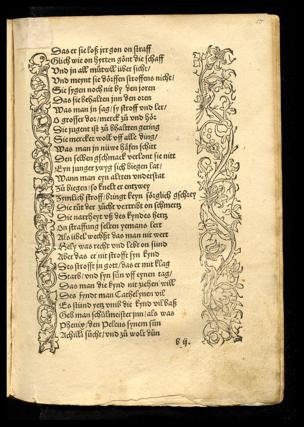 Das er sie loß jrr gon on straff
Glich wie on hyrten gönt die schaff
Vnd jn all můtwill vber sicht/
Vnd meynt sie dörffen stroffens nicht/
Sie sygen noch nit by den joren
Das sie behalten jnn den oren
Was man jn sag/ sy stroff vnd ler/
O grosser dor/ merck zů vnd hör
Die jugent ist zů bhalten gering
Sie mercket wol vff alle ding/
Was man jn nüwe häfen schitt
Den selben gschmack verlont sie nitt
Eyn junger zwyg sich biegen lat/
Wann man eyn altten vnderstat
Zů biegen/ so knellt er entzwey
Zymlich stroff/ bringt keyn sörglich gschrey
Die růt der zücht vertribt on schmertz
Die narrheyt vß des kyndes hertz
On straffung selten yemens lert
Als übel wechßt das man nit wert
Hely was recht vnd lebt on sünd
Aber das er nit strofft syn kynd
Des strofft jn gott/ das er mit klag
Starb/ vnd syn sün vff eynen tag/
Das man die kynd nit ziehen will
Des fyndt man Cathelynen vil
Es stünd yetz vmb die kynd vil baß
Geb man schůlmeister jnn/ als was
Phenix/ den Peleus synem sůn
Achilli sůcht/ vnd zů wolt důn
b ij.